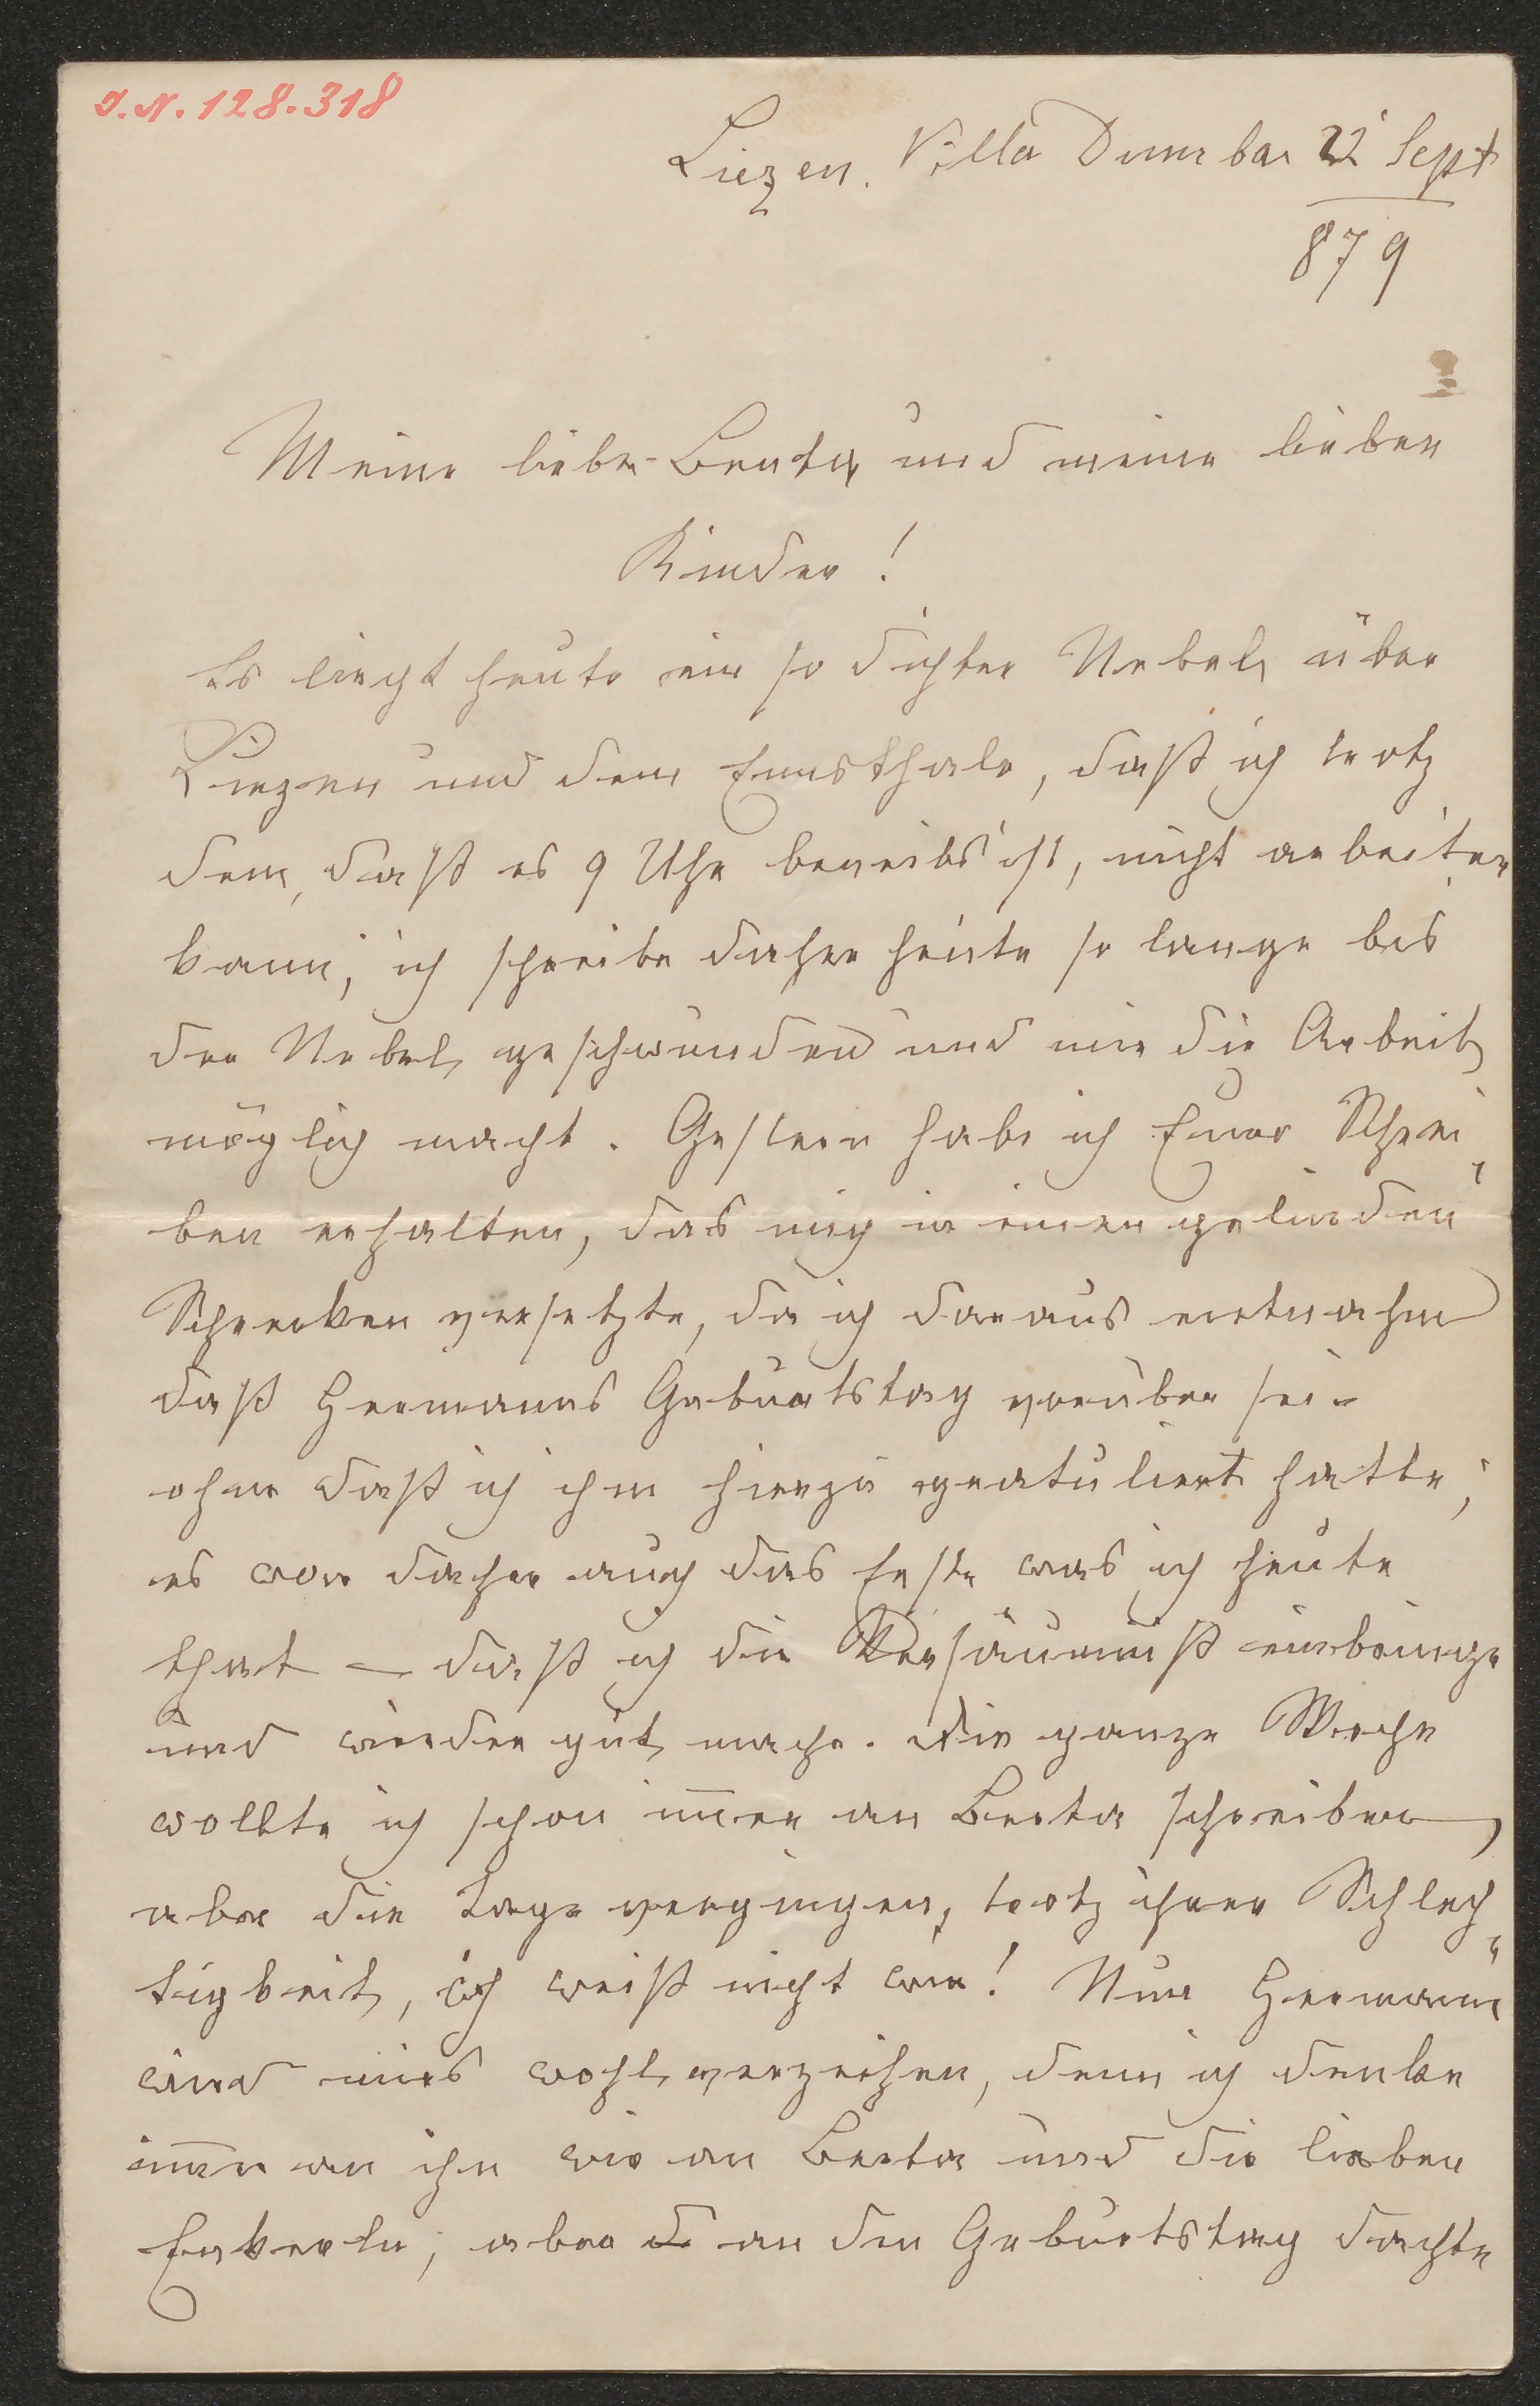 I.N. 128.318
Liezen. Villa Dumba 22 Sept
879
Meine liebe Berta und meine lieben
Kinder!
Es liegt heute ein so dichter Nebel über
Liezen und dem Ennsthale, daß ich trotz
dem, daß es 9 Uhr bereits ist, nicht arbeiten
kann; ich schreibe daher heute so lange bis
der Nebel geschwunden und mir die Arbeit
möglich macht. Gestern habe ich Euer Schrei
ben erhalten, das mich in einen gelinden
Schrecken versetzte, da ich daraus entnahm
daß Hermanns Geburtstag vorüber sei -
ohne daß ich ihm hierzu gratuliert hatte;
es war daher auch das Erste was ich heute
that – daß ich die Versäumniß einbringe
und wieder gut mache. Die ganze Woche
wollte ich schon im̅er an Berta schreiben,
aber die Tage vergingen, trotz ihrer Schlech
tigkeit, ich weiß nicht wie! Nun Hermann
wird mirs wohl verzeihen, denn ich denke
im̅er an ihn wie an Berta und die lieben
Enkerln; aber an den Geburtstag dachte